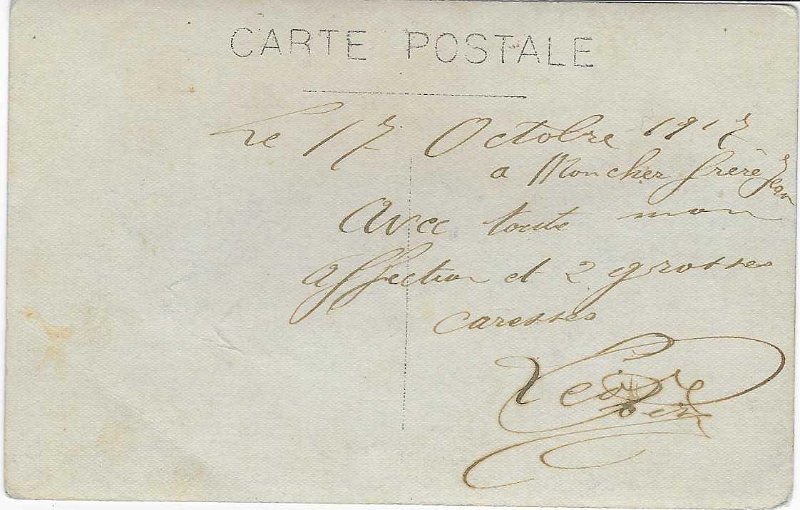 CARTE POSTALE
Le 17 Octobre 1917
a Moncher frère Jean
avec toute mon
affection et 2 grosses
caresses